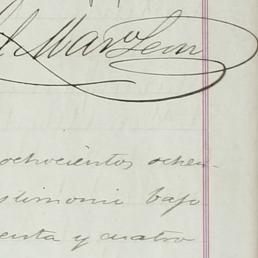 Marº Leon
ochocientos ochen-
stimonio bajo
enta y cuatro